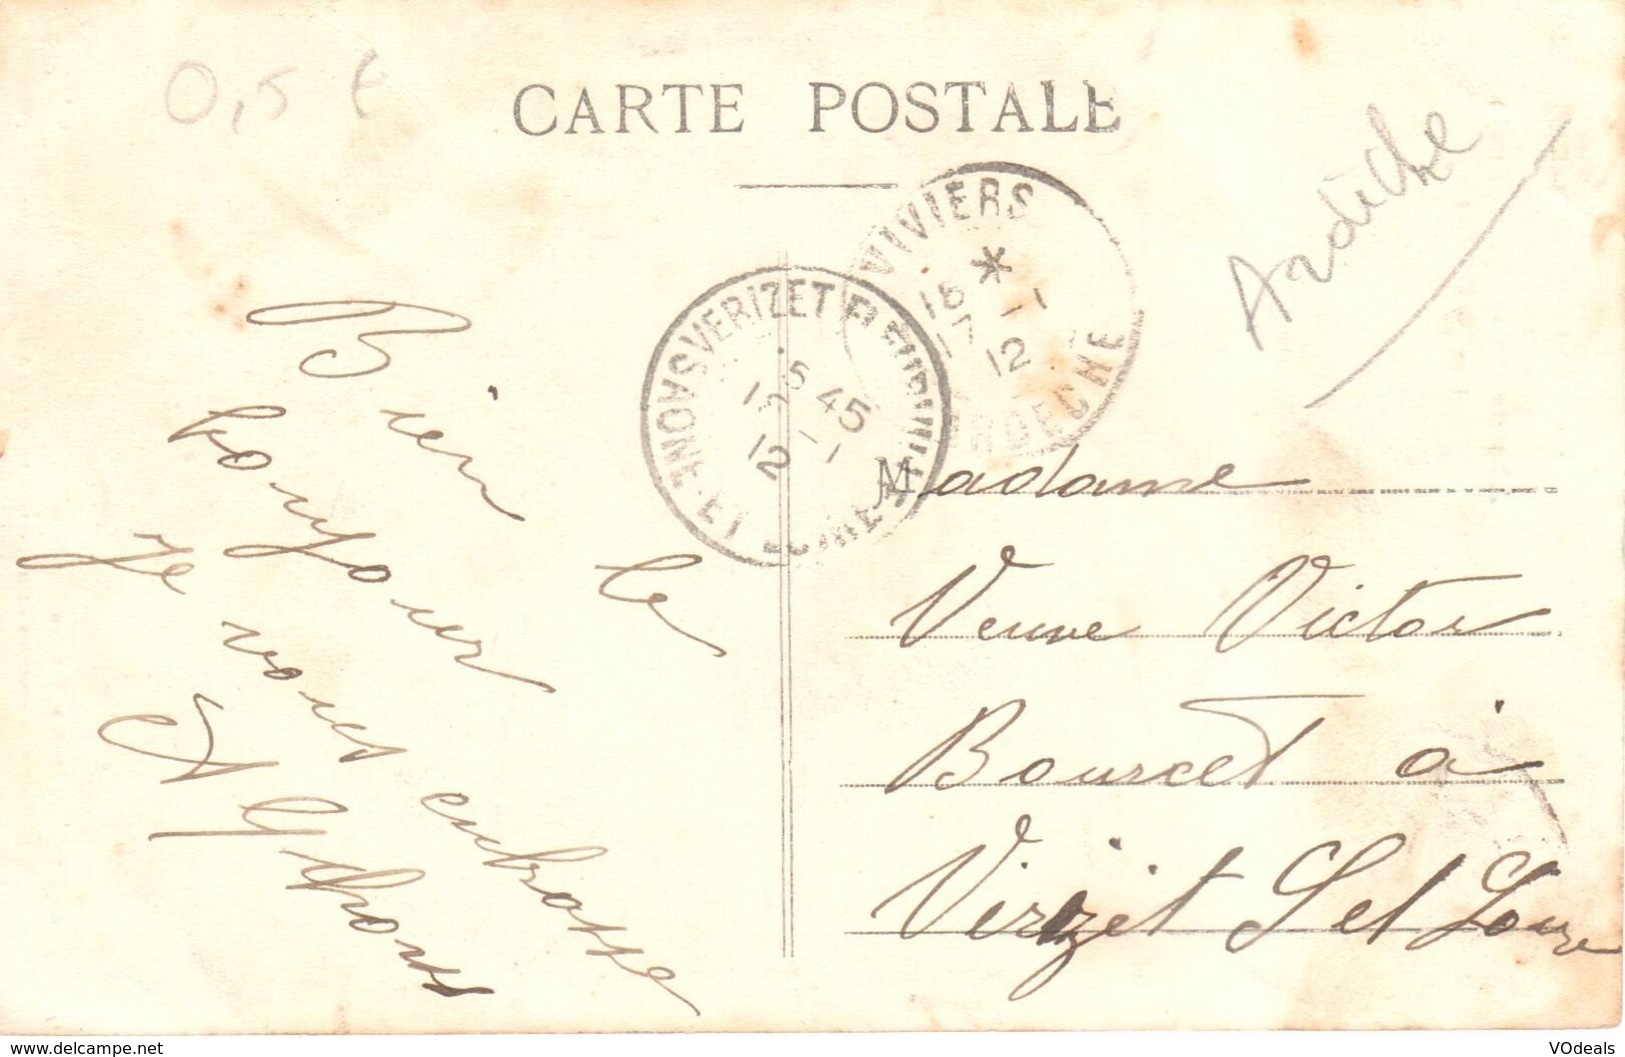 0,5 €
CARTE POSTALE
Ardèche
VIVIERS
18 * -1
12
ARDECHE
VERIZET FLEURVILLE
SAONE-ET-LOIRE
5 45
12 -1
Bien le
bonjour
Je vous embrasse
Alphons
Madame
Veuve Victor
Bourcet à
Virizet S et Loire
www.delcampe.net
VOdeals